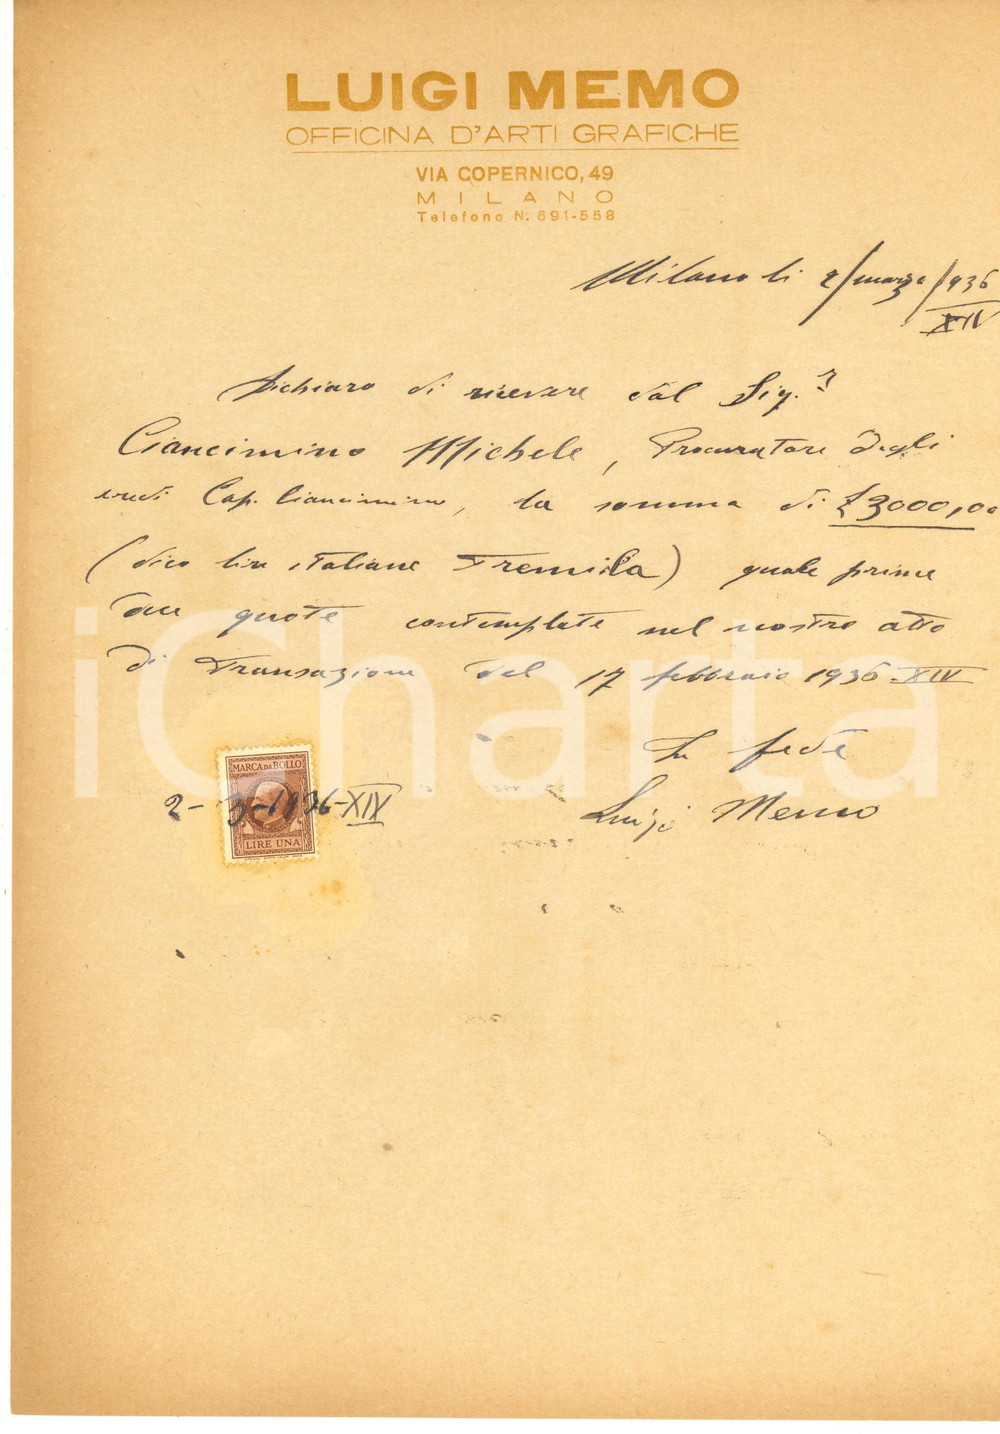 LUIGI MEMO
OFFICINA D'ARTI GRAFICHE
VIA COPERNICO, 49
MILANO
Telefono N. 691-558
Milano li 2/marzo/936
XIV
Dichiaro di ricevere dal Sig.r
Ciancimino Michele, Procuratore degli
eredi Cap. Ciancimino, la somma di £ 3000,00
(dico lire italiane Tremila) quale prime
due quote contemplate nel nostro atto
di Transazione del 17 febbraio 1936 XIV
In fede
Luigi Memo
MARCA DA BOLLO
2-3-1936-XIV
LIRE UNA
iCharta